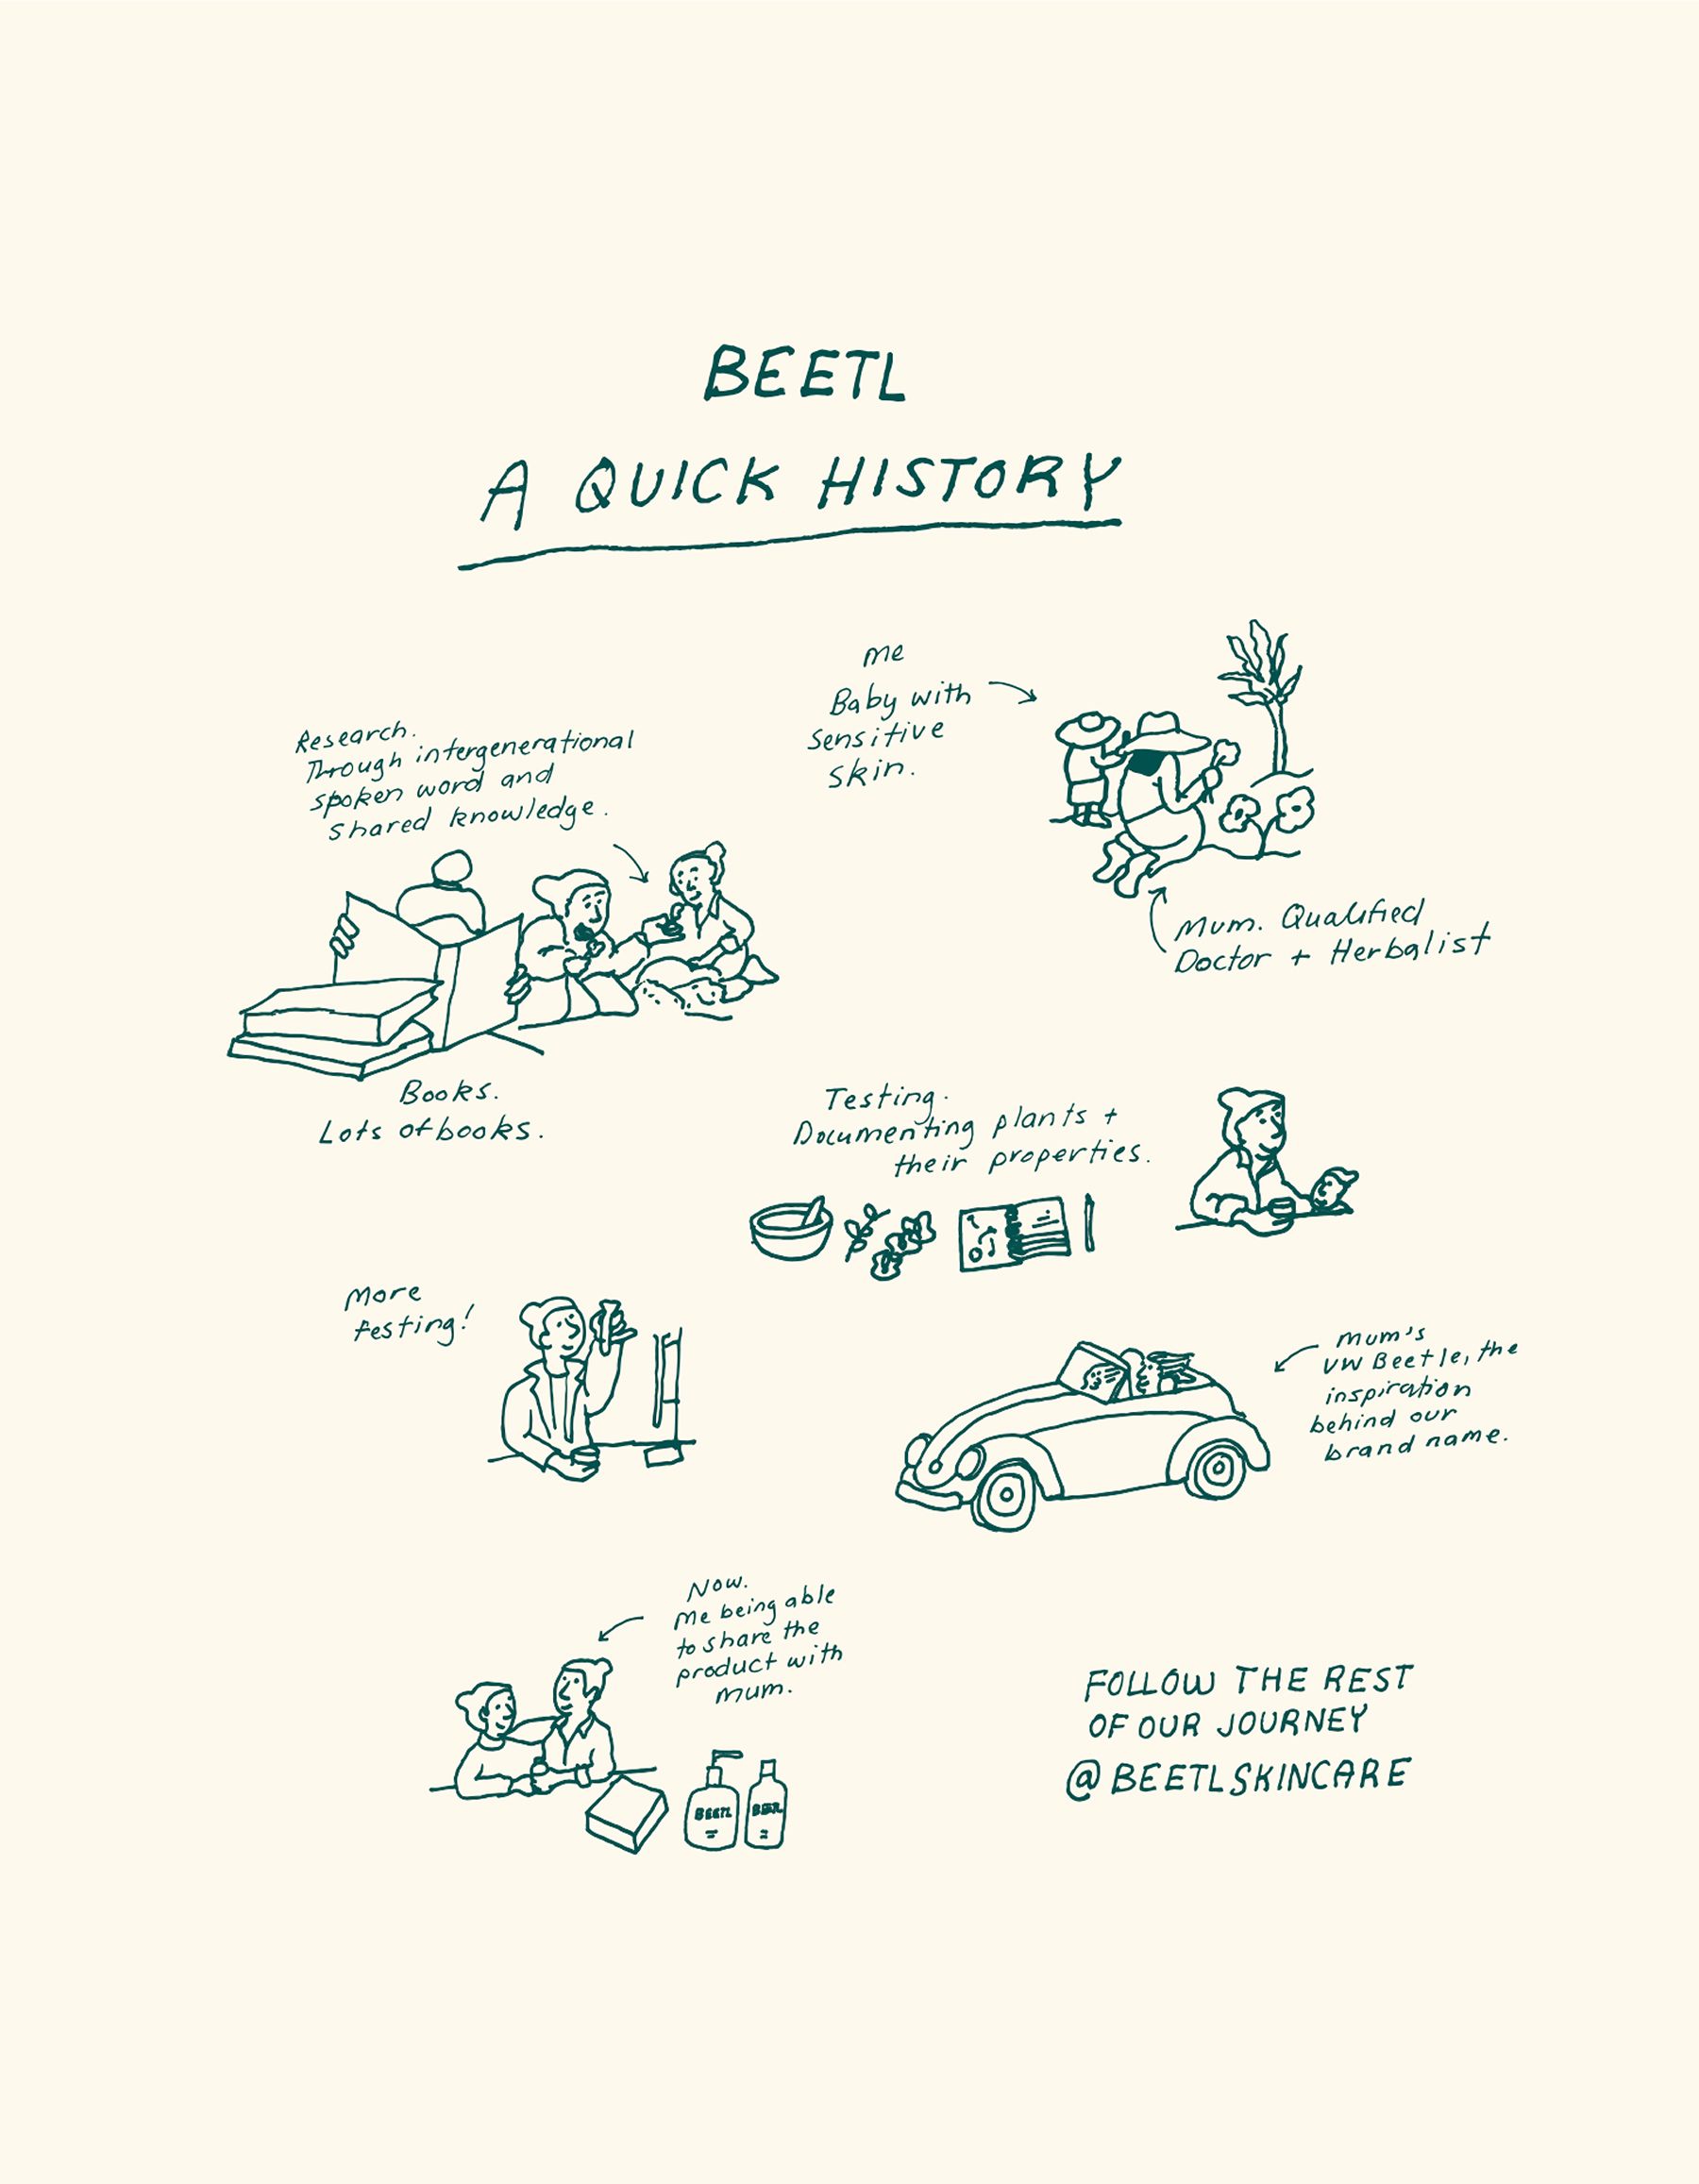 BEETL
A QUICK HISTORY
me
Baby with
sensitive
skin.
Research.
Through intergenerational
spoken word and
shared knowledge.
Mum. Qualified
Doctor + Herbalist
Books.
Lots of books.
Testing.
Documenting plants +
their properties.
More
testing!
mum's
VW Beetle, the
inspiration
behind our
brand name.
Now.
Me being able
to share the
product with
mum.
BEETL
BEETL
FOLLOW THE REST
OF OUR JOURNEY
@BEETLSKINCARE